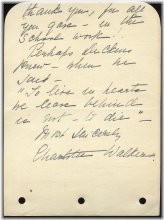 thank you, for all
you gave - in the
School work!
Perhaps Dickens
knew - when he
said -
"To live in hearts
we leave behind
is not - to die" -
Most Sincerely
Charlotte Walker